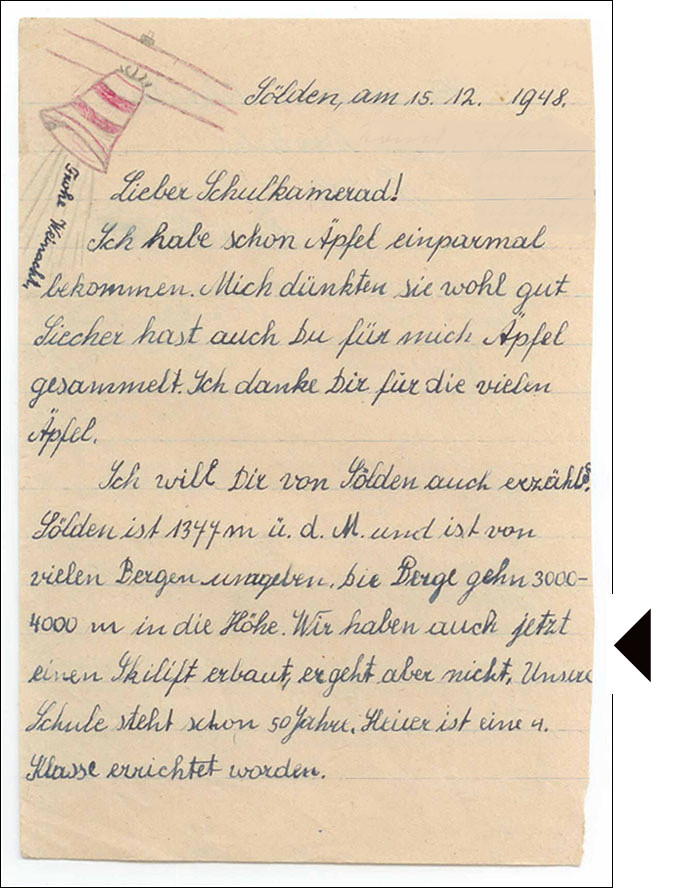 Sölden, am 15. 12. 1948.
Frohe Weinacht,
Lieber Schulkamerad!
Ich habe schon Äpfel einparmal
bekommen. Mich dünkten sie wohl gut
Siecher hast auch Du für mich Äpfel
gesammelt. Ich danke Dir für die vielen
Äpfel.
Ich will Dir von Sölden auch erzähln.
Sölden ist 1377 m ü. d. M. und ist von
vielen Bergen umgeben. Die Berge gehn 3000-
4000 m in die Höhe. Wir haben auch jetzt
einen Skilift erbaut, er geht aber nicht. Unsere
Schule steht schon 50 Jahre. Heuer ist eine 4.
Klasse errichtet worden.